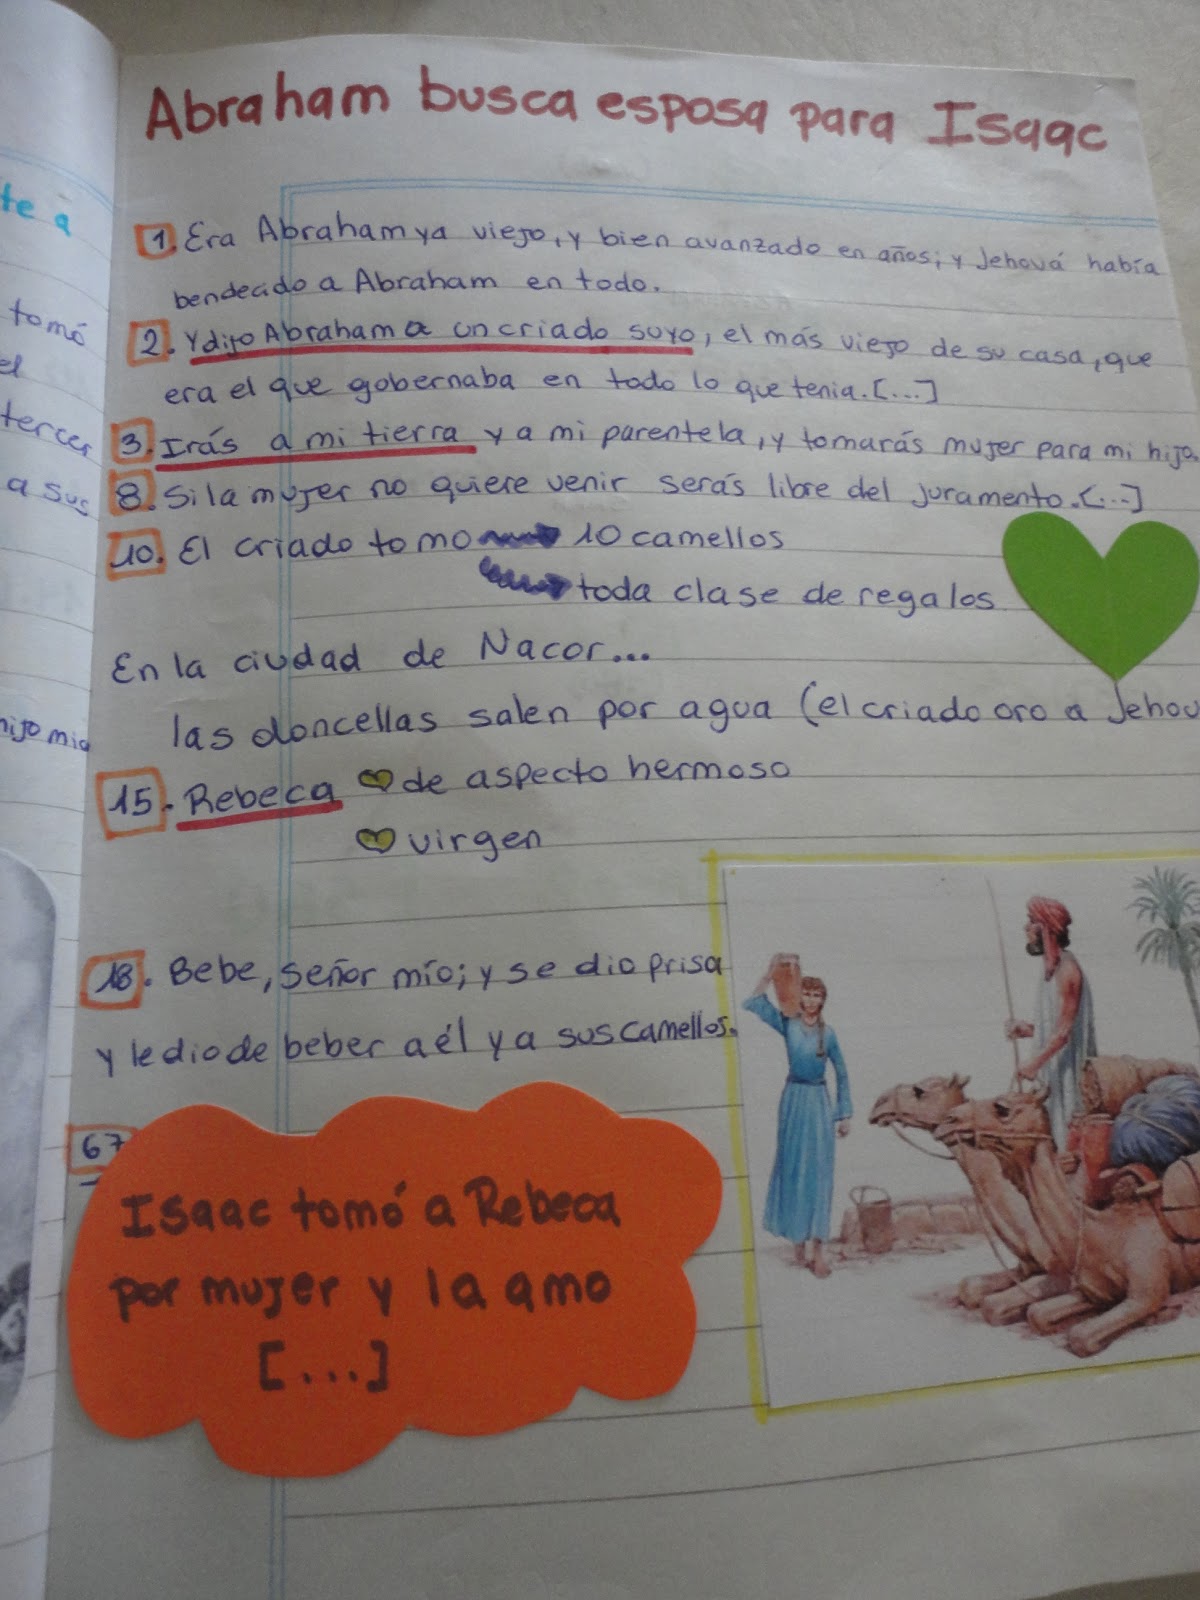 Abraham busca esposa para Isaac
te a
1. Era Abraham ya viejo, y bien avanzado en años; y Jehová había
bendecido a Abraham en todo.
tomó
2. Y dijo Abraham a un criado suyo, el más viejo de su casa, que
el
era el que gobernaba en todo lo que tenia. [...]
tercer
3. Irás a mi tierra y a mi parentela, y tomarás mujer para mi hijo.
a sus
8. Si la mujer no quiere venir serás libre del juramento. [...]
10. El criado tomo 10 camellos
toda clase de regalos
En la ciudad de Nacor...
las doncellas salen por agua (el criado oro a Jehov
hijo mio
15. Rebeca de aspecto hermoso
virgen
18. Bebe, señor mío; y se dio prisa
y le dio de beber a él y a sus camellos.
67
Isaac tomó a Rebeca
por mujer y la amo
[...]